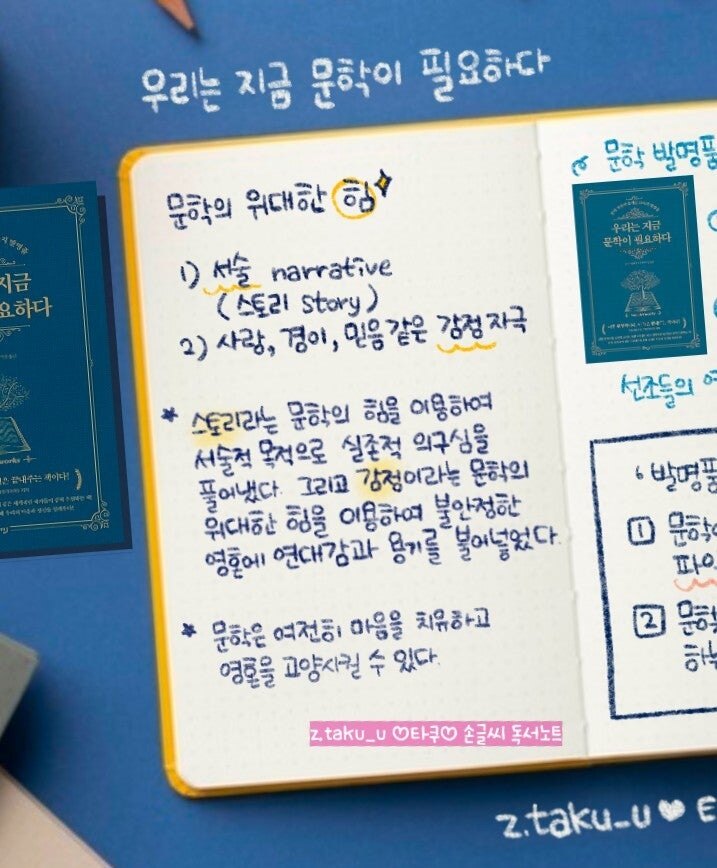 우리는 지금 문학이 필요하다
지금
요하다
은 끝내주는 책이다!
문학의 위대한 힘
1) 서술 narrative
(스토리 story)
2) 사랑, 경이, 믿음같은 감정자극
* 스토리라는 문학의 힘을 이용하여
서술적 목적으로 실존적 의구심을
풀어냈다. 그리고 감정이라는 문학의
위대한 힘을 이용하여 불안정한
영혼에 연대감과 용기를 불어넣었다.
* 문학은 여전히 마음을 치유하고
영혼을 고양시킬 수 있다.
z.taku_u ♡타쿠♡ 손글씨 독서노트
문학 발명품
우리는 지금
문학이 필요하다
선조들의
발명품
1 문학
파
2 문학
하
z.taku_u ♥ E